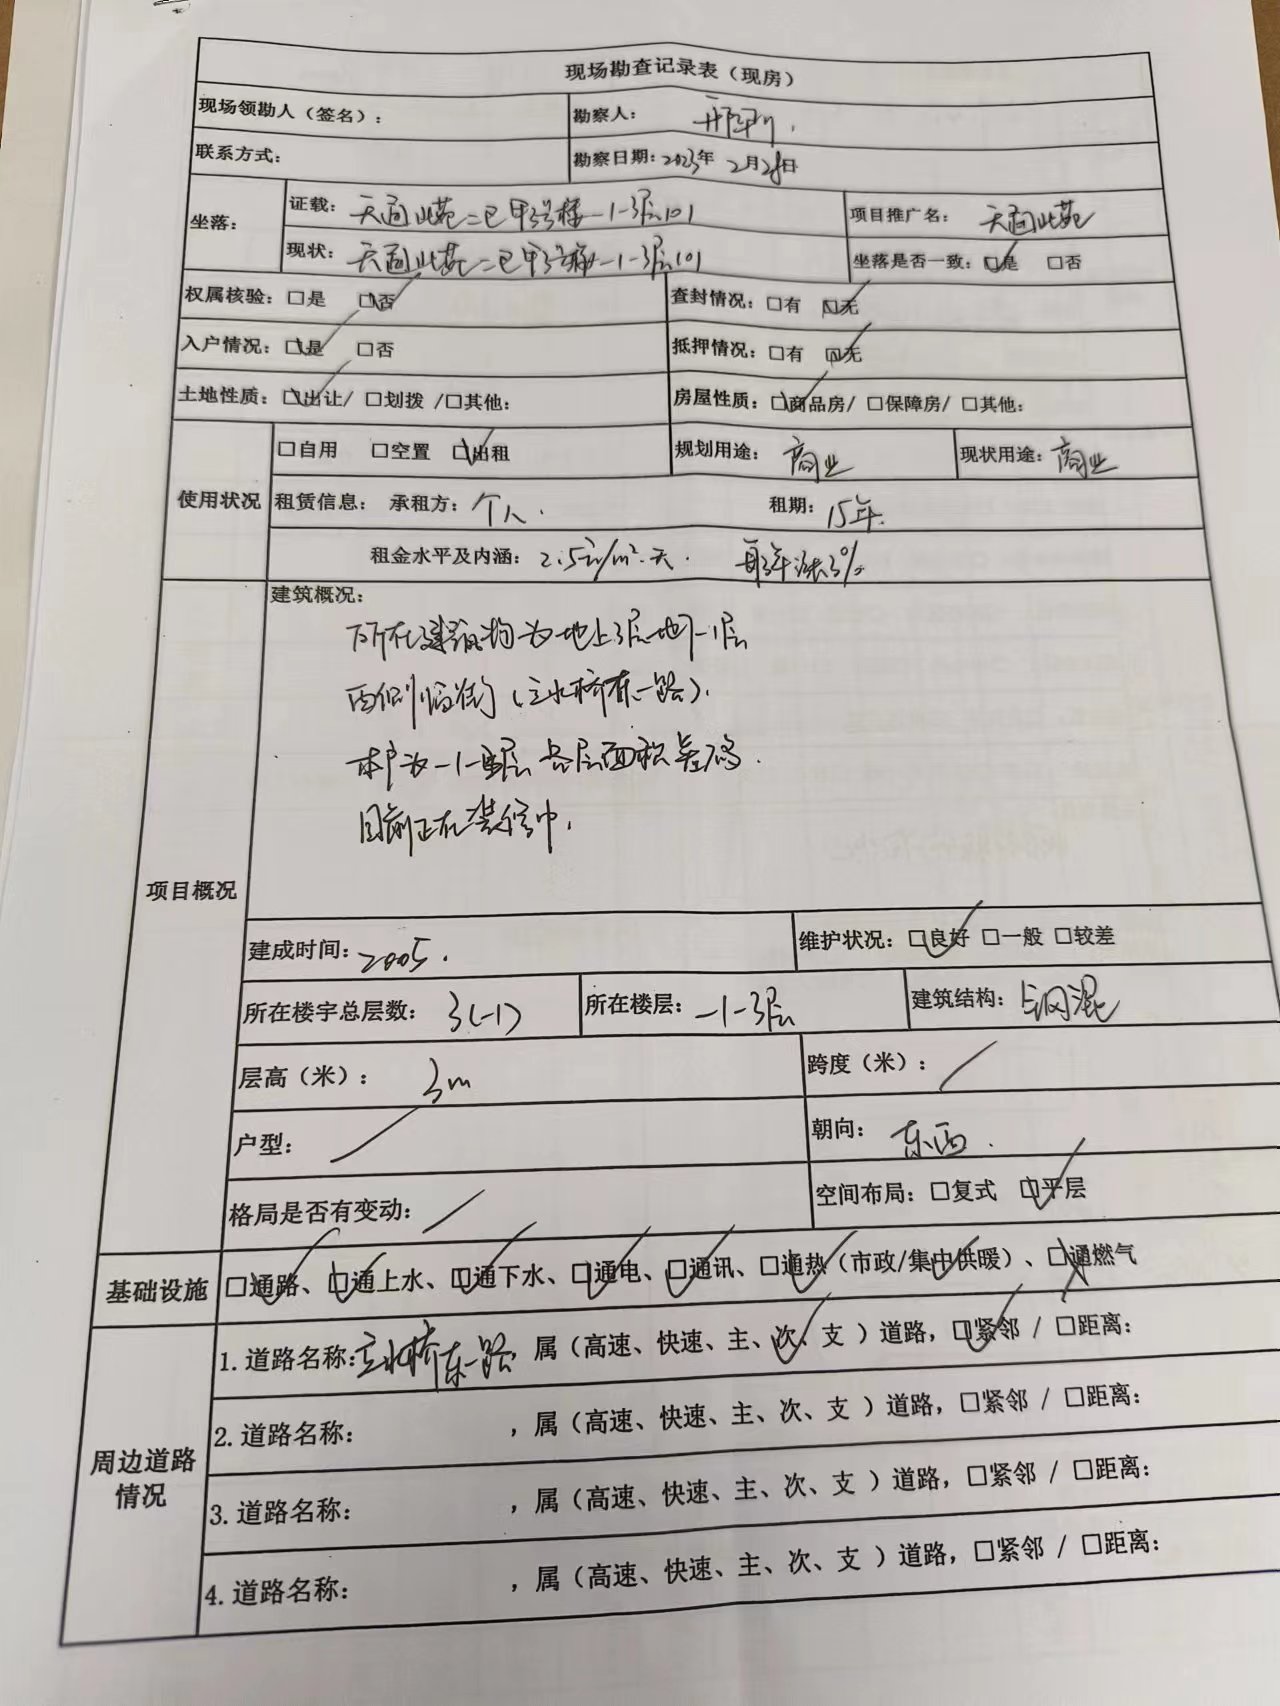 现场勘查记录表（现房）
现场领勘人（签名）： 勘察人：
联系方式： 勘察日期：2023年 2月28日
坐落： 证载：天通北苑二区甲3号楼-1-3层101 项目推广名：天通北苑
现状：天通北苑二区甲3号楼-1-3层101 坐落是否一致：☑是 □否
权属核验：□是 ☑否 查封情况：□有 ☑无
入户情况：☑是 □否 抵押情况：□有 ☑无
土地性质：☑出让/ □划拨 /□其他： 房屋性质：☑商品房/ □保障房/ □其他：
使用状况 □自用 □空置 ☑出租 规划用途：商业 现状用途：商业
租赁信息： 承租方：个人. 租期：15年.
租金水平及内涵：2.5元/m².天. 每3年涨3%
项目概况 建筑概况：
所在建筑物为地上3层地下-1层
西侧临街（立水桥东一路）.
本户为-1-3层 各层面积差不多.
目前正在装修中.
建成时间：2005. 维护状况：☑良好 □一般 □较差
所在楼宇总层数：3(-1) 所在楼层：-1-3层 建筑结构：钢混
层高（米）：3m 跨度（米）：/
户型：/ 朝向：东西.
格局是否有变动：/ 空间布局：□复式 ☑平层
基础设施 ☑通路、☑通上水、☑通下水、☑通电、☑通讯、☑通热（市政/集中供暖）、☒通燃气
周边道路情况 1.道路名称：立水桥东一路，属（高速、快速、主、次、支 ）道路，☑紧邻 / □距离：
2.道路名称： ，属（高速、快速、主、次、支 ）道路，□紧邻 / □距离：
3.道路名称： ，属（高速、快速、主、次、支 ）道路，□紧邻 / □距离：
4.道路名称： ，属（高速、快速、主、次、支 ）道路，□紧邻 / □距离：